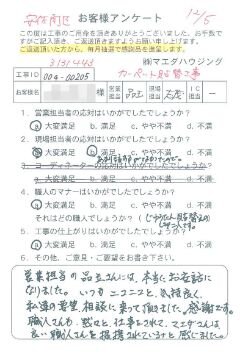 安佐南区 お客様アンケート 12/5
この度は工事のご用命を頂きありがとうございました。お手数で
すがご記入頂き、ご返送頂きますようお願い申し上げます。
ご返送頂いた方から、毎月抽選で感謝品を進呈します。
3131443 ㈱マエダハウジング
工事ID 004-00205 カーペット貼替工事
お客様名 営業担当 品玉 工事担当 IC
1. 営業担当者の応対はいかがでしたでしょうか？
ⓐ大変満足 b.満足 c.やや不満 d.不満
2. 現場担当者の応対はいかがでしたでしょうか？
a.大変満足 b.満足 c.やや不満 d.不満
3. コーディネーターの応対はいかがでしたでしょうか？
a.大変満足 b.満足 c.やや不満 d.不満
4. 職人のマナーはいかがでしたでしょうか？
ⓐ大変満足 b.満足 c.やや不満 d.不満
それはどの職人でしょうか？
5. 工事の仕上がりはいかがでしたでしょうか？
ⓐ大変満足 b.満足 c.やや不満 d.不満
6. その他、ご意見・ご要望をお書き下さい。
営業担当の品玉さんには、本当にお世話に
なりました。いつもニコニコと、気持良く
私達の要望、相談に乗って頂きました。感謝です。
職人さんも黙々と仕事をされて、マエダさんは、
良い職人さんを提携されていると感じました。